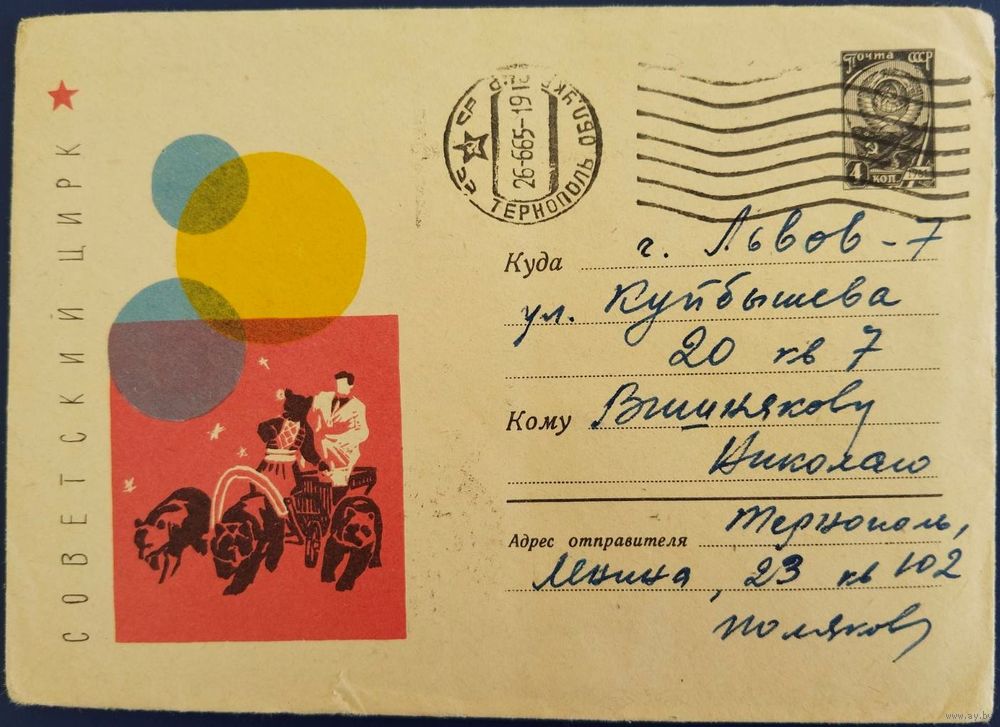 СОВЕТСКИЙ ЦИРК
ТЕРНОПОЛЬ ОБЛ.УКР
26-665-19
Почта СССР
4 КОП
Куда г. Львов-7
ул. Куйбышева
20 кв 7
Кому Вишнякову
Николаю
Адрес отправителя Тернополь,
Ленина, 23 кв 102
Поляков
www.ay.by